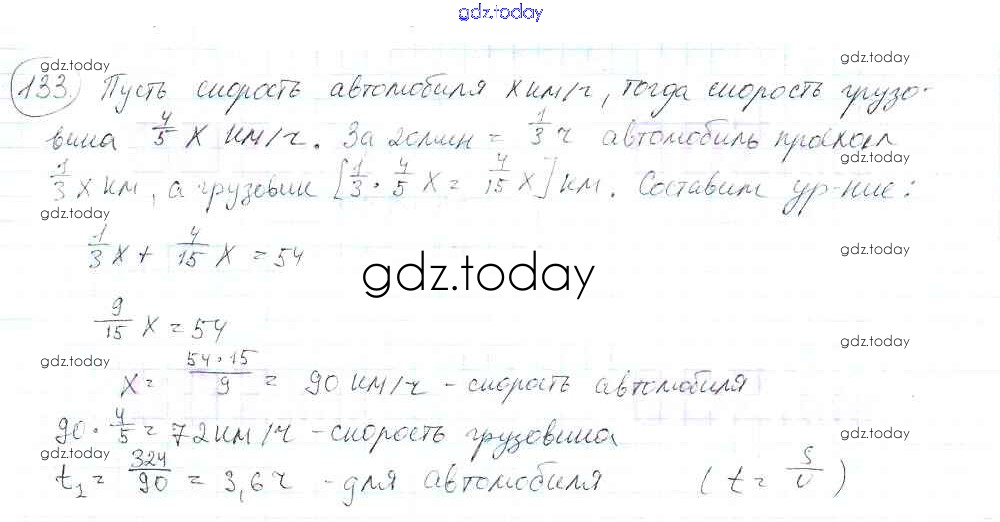 gdz.today
gdz.today gdz.today
133. Пусть скорость автомобиля x км/ч, тогда скорость грузо-
вика 4/5 x км/ч. За 20 мин = 1/3 ч автомобиль проехал
gdz.today
1/3 x км, а грузовик [1/3 · 4/5 x = 4/15 x] км. Составим ур-ние:
gdz.today
1/3 x + 4/15 x = 54
gdz.today
gdz.today
9/15 x = 54
gdz.today
gdz.today
x = 54·15/9 = 90 км/ч - скорость автомобиля
90 · 4/5 = 72 км/ч - скорость грузовика
gdz.today gdz.today
t₁ = 324/90 = 3,6 ч - для автомобиля (t = S/v)